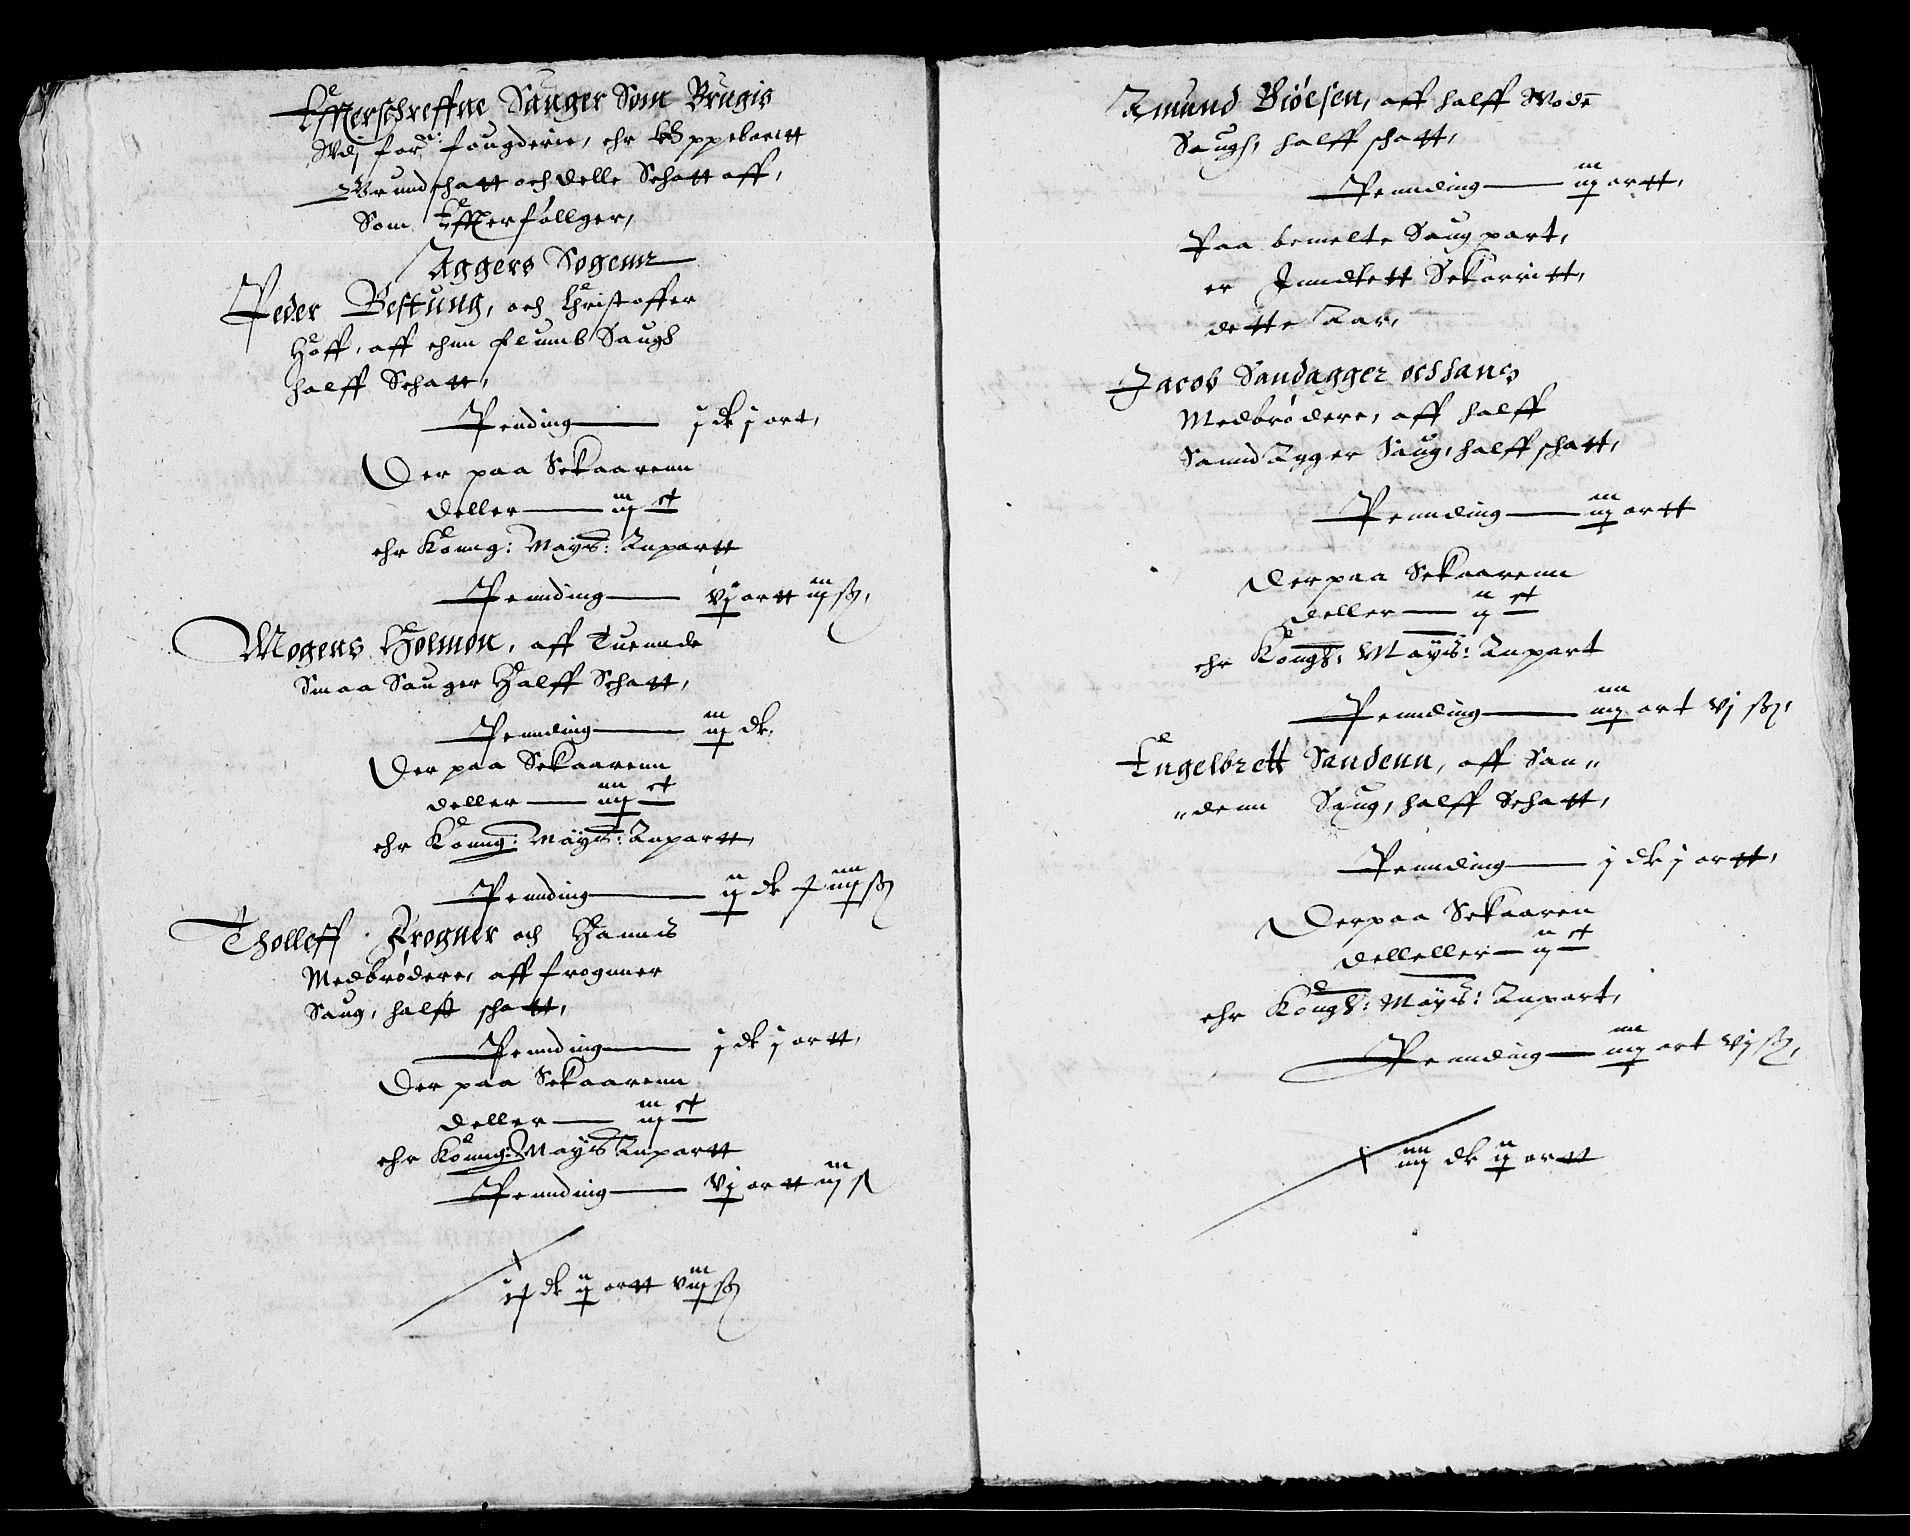 Effterschreffne Sauger Som Brugis
Vdj for.ne fougderie, ehr Oppeborett
Grundschatt och delle Schatt aff,
Som Effterføllger,
Aggers Sogenn
Peder Bestung, och Christoffer
Hoff, aff ehnn flomb Saugh
halff Schatt,
Pending j dlr j ort,
Der paa Skaarenn
deller iij ct
ehr Konng: Mayts: Anpartt
Pennding vj ortt iij sz,
Mogens Holmen, aff Tuennde
Smaa Sauger Halff Schatt,
Pennding iij dlr.
Der paa Skaarenn
deller iiij ct
ehr Konng: Mayts: Anpartt,
Pennding ij dlr iiij sz
Tholleff Frogner och Hannis
Medbrødere, aff frognner
Saug, halff schatt,
Pennding j dlr j ortt,
Der paa Skaarenn
deller iij ct
ehr Konng: Mayts Anpartt
Pennding vj ortt iij s
dlr ij ortt viij sz
Amund Biølsen, aff halff
Saugh, halff schatt,
Pennding iij ortt,
Paa bemelte Saug part,
er Inndtett Skorritt,
dette Aar,
Jacob Sandagger och hans
Medbrødere, aff halff
Sannd Agger Saug, halff schatt,
Pennding iij ortt
Der paa Skaarenn
deller ij ct
ehr Kongh: Mayts: Anpart
Pennding iiij ort vj sz,
Engelbrett Sandenn, aff San„
„denn Saug, halff Schatt,
Pennding j dlr j ortt,
Der paa Skaaren
delleller ij ct
ehr Kongh: Mayts: Anpart,
Pennding iiij ort vj sz,
iiij dlr ij ortt